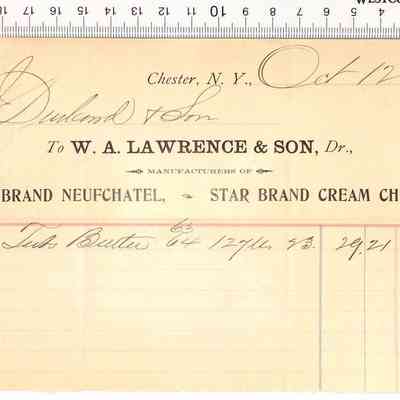 WESTCO
18 17 16 15 14 13 12 11 10 9 8 7 6 5 4
Chester, N. Y., Oct 12
Durland & Son
To W. A. LAWRENCE & SON, Dr.,
MANUFACTURERS OF
BRAND NEUFCHATEL, STAR BRAND CREAM CH
63
Tubs Butter 64 127 lbs 23. 29.21